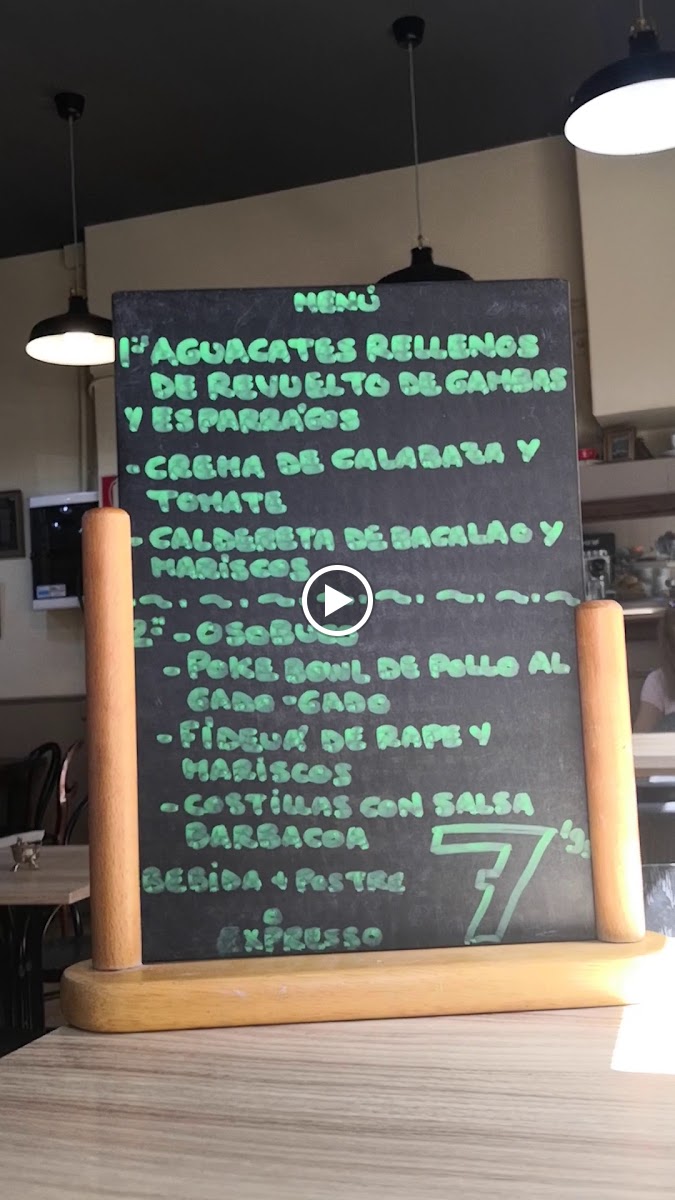 MENÚ
1º AGUACATES RELLENOS
DE REVUELTO DE GAMBAS
Y ESPARRAGOS
- CREMA DE CALABAZA Y
TOMATE
- CALDERETA DE BACALAO Y
MARISCOS
2º - OSOBUCO
- POKE BOWL DE POLLO AL
GADO-GADO
- FIDEUÁ DE RAPE Y
MARISCOS
- COSTILLAS CON SALSA
BARBACOA
BEBIDA + POSTRE
O
EXPRESSO
7